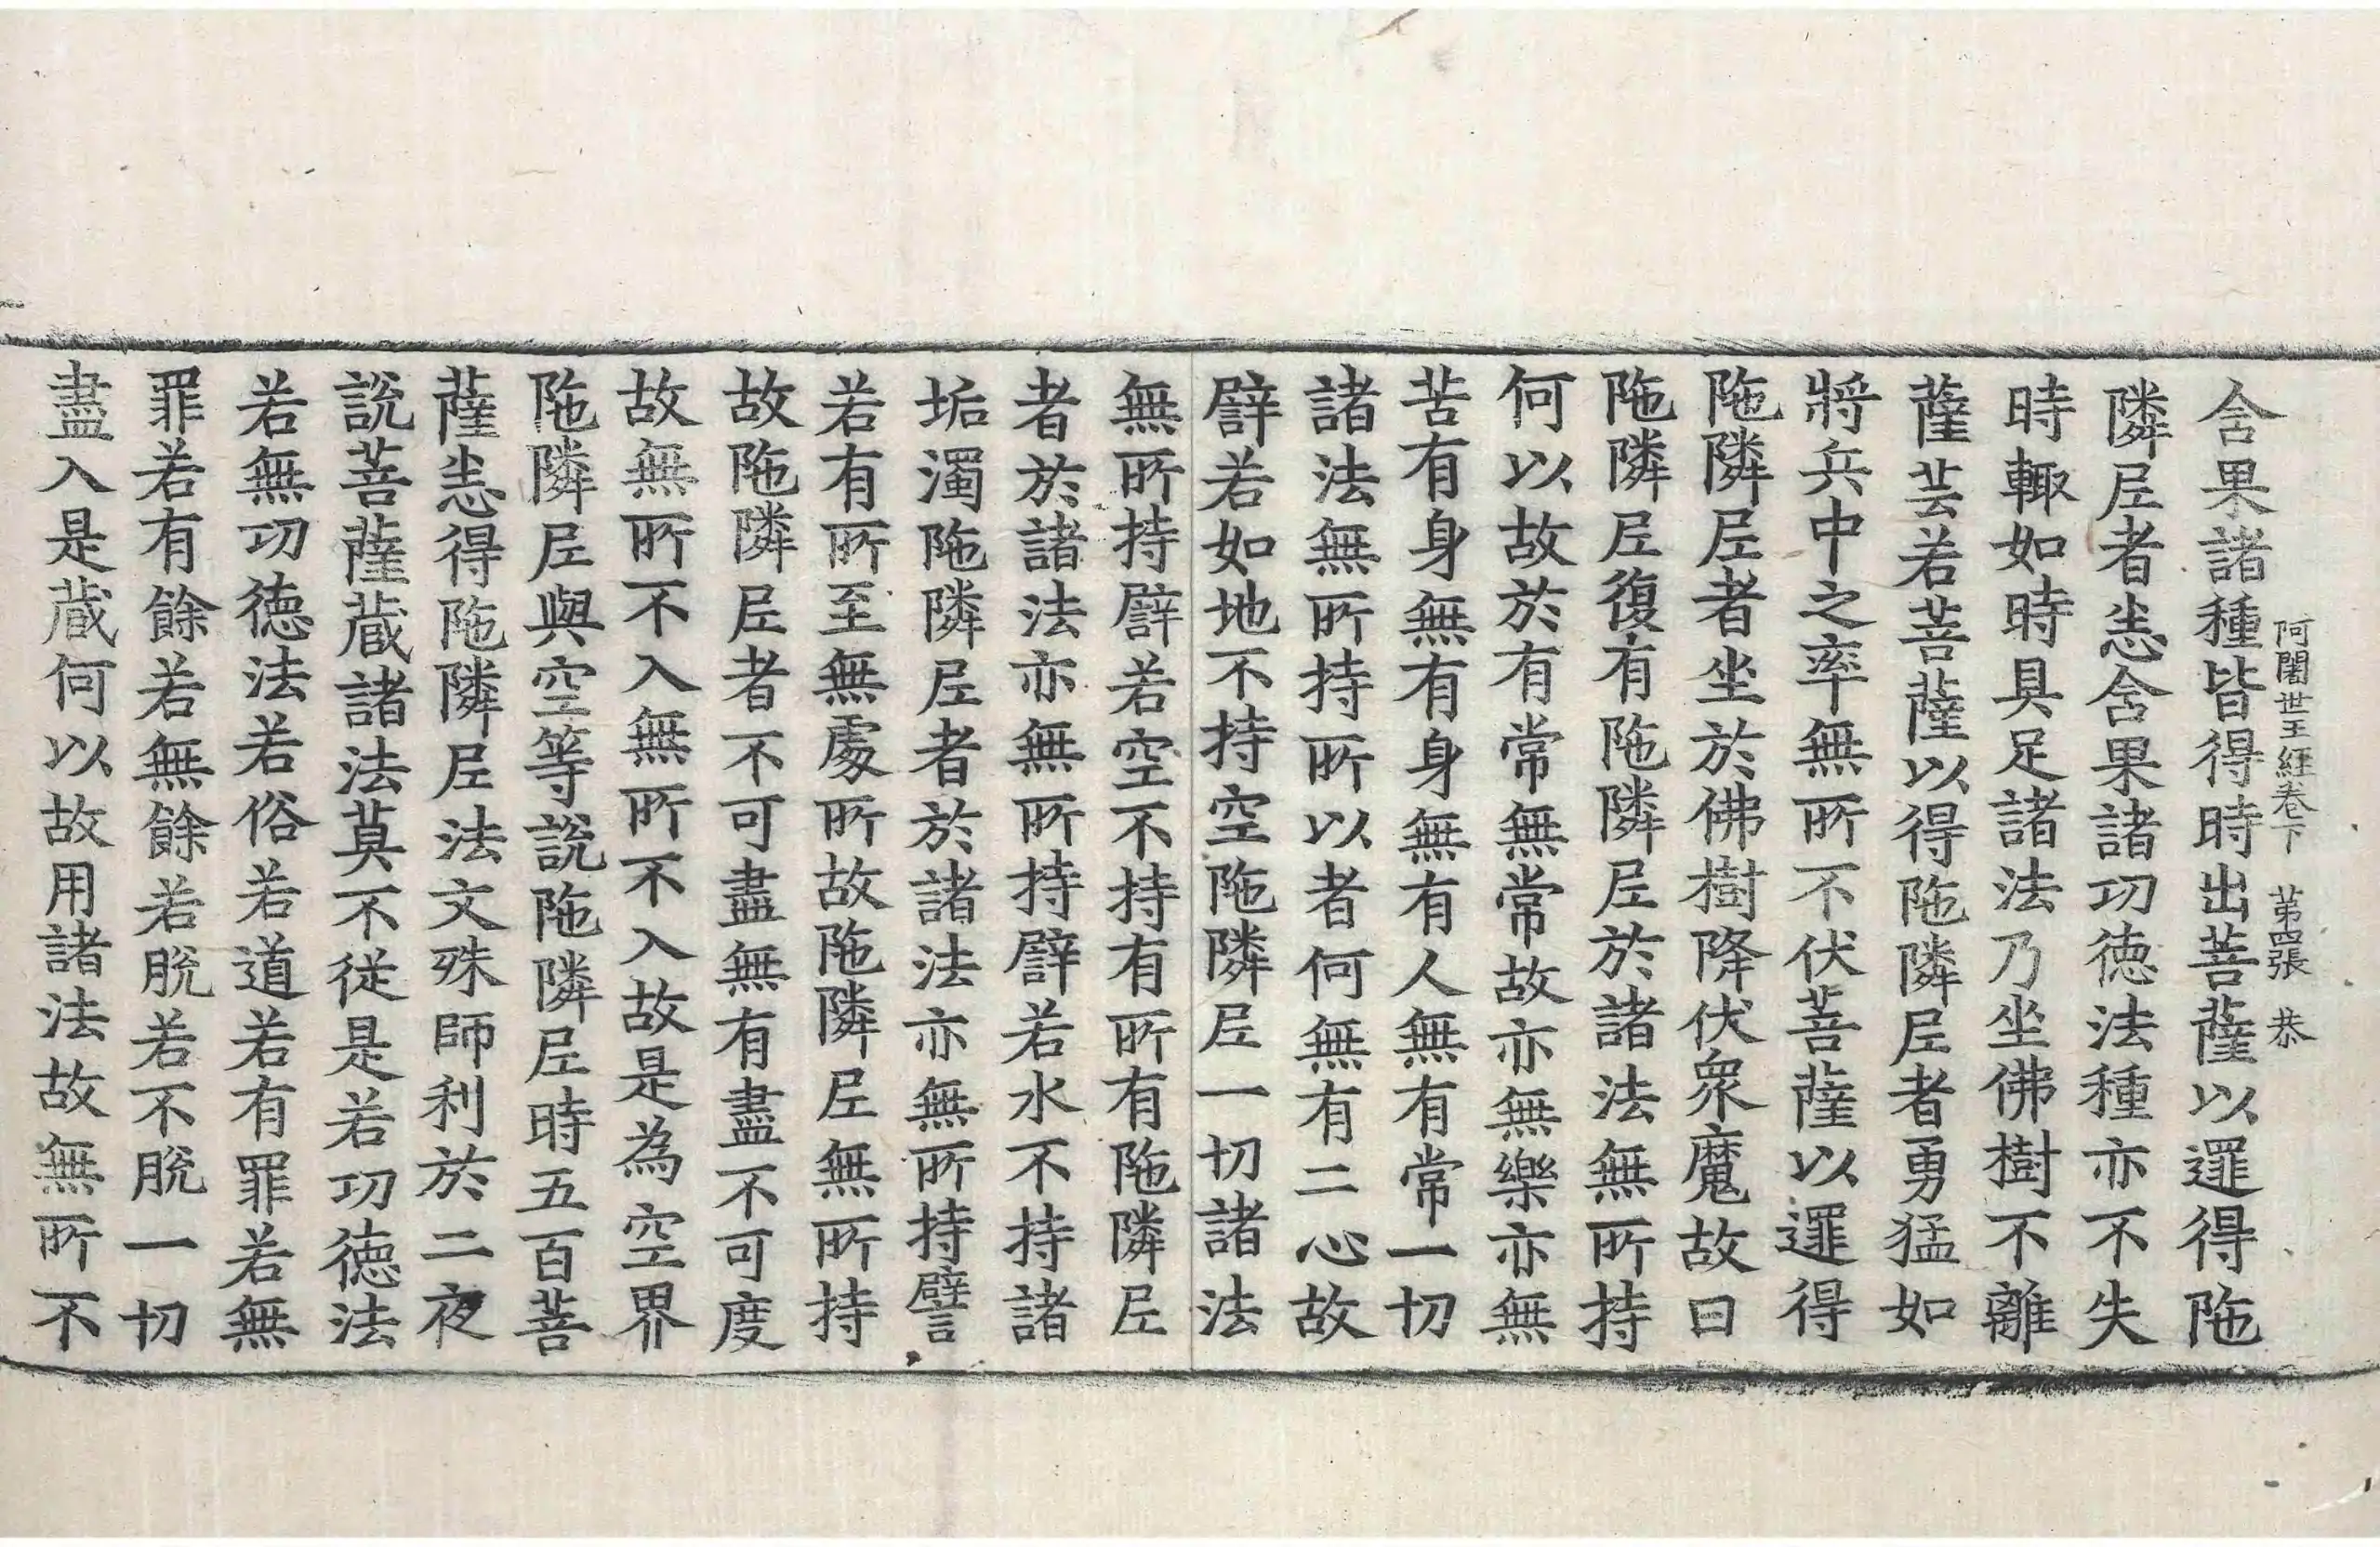 阿闍世王經卷下　第四張　恭
含果諸種皆得時出菩薩以邏得陁
隣尼者恙含果諸功德法種亦不失
時輙如時具足諸法乃坐佛樹不離
薩芸若菩薩以得陁隣尼者勇猛如
將兵中之率無所不伏菩薩以邏得
陁隣尼者坐於佛樹降伏衆魔故曰
陁隣尼復有陁隣尼於諸法無所持
何以故於有常無常故亦無樂亦無
苦有身無有身無有人無有常一切
諸法無所持所以者何無有二心故
譬若如地不持空陁隣尼一切諸法
無所持譬若空不持有所有陁隣尼
者於諸法亦無所持譬若水不持諸
垢濁陁隣尼者於諸法亦無所持譬
若有所至無處所故陁隣尼無所持
故陁隣尼者不可盡無有盡不可度
故無所不入無所不入故是為空界
陁隣尼與空等說陁隣尼時五百菩
薩恙得陁隣尼法文殊師利於二夜
說菩薩藏諸法莫不從是若功德法
若無功德法若俗若道若有罪若無
罪若有餘若無餘若脫若不脫一切
盡入是藏何以故用諸法故無所不